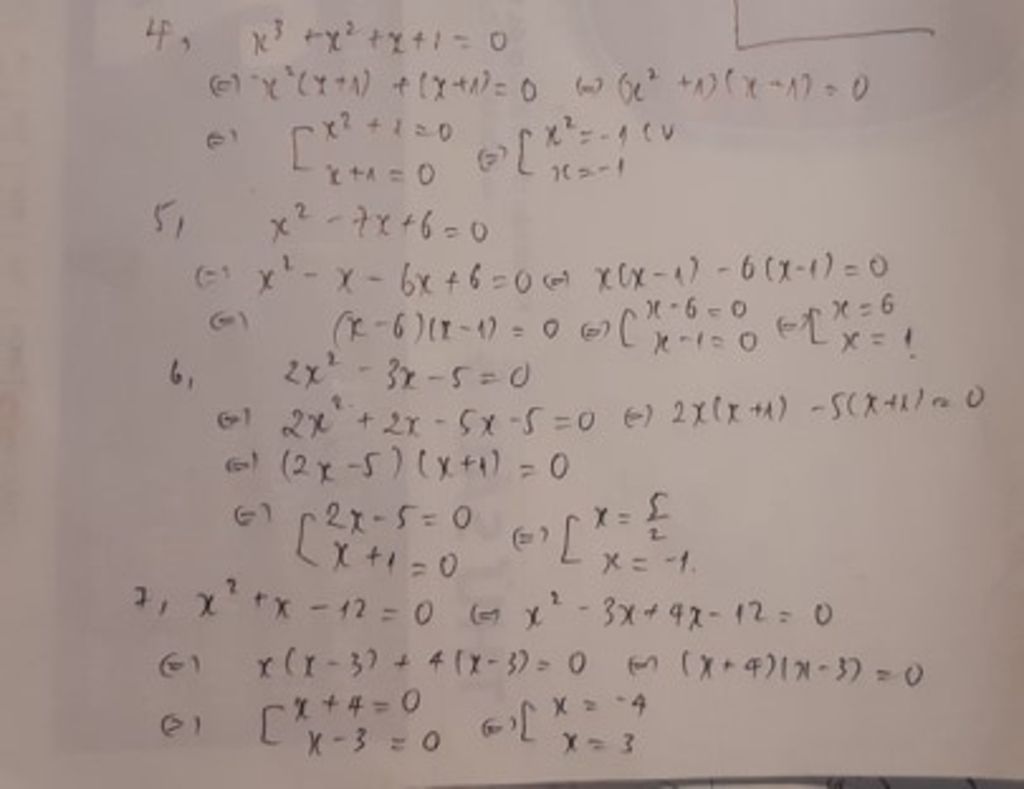 4, x³ + x² + x + 1 = 0
(=) x²(x+1) + (x+1) = 0 (=) (x² + 1)(x + 1) = 0
(=) [ x² + 1 = 0 (=) [ x² = -1 (v
x + 1 = 0 x = -1
5, x² - 7x + 6 = 0
(=) x² - x - 6x + 6 = 0 (=) x(x-1) - 6(x-1) = 0
(=) (x-6)(x-1) = 0 (=) [ x - 6 = 0 (=) [ x = 6
x - 1 = 0 x = 1
6, 2x² - 3x - 5 = 0
(=) 2x² + 2x - 5x - 5 = 0 (=) 2x(x+1) - 5(x+1) = 0
(=) (2x - 5)(x+1) = 0
(=) [ 2x - 5 = 0 (=) [ x = 5/2
x + 1 = 0 x = -1.
7, x² + x - 12 = 0 (=) x² - 3x + 4x - 12 = 0
(=) x(x-3) + 4(x-3) = 0 (=) (x+4)(x-3) = 0
(=) [ x + 4 = 0 (=) [ x = -4
x - 3 = 0 x = 3